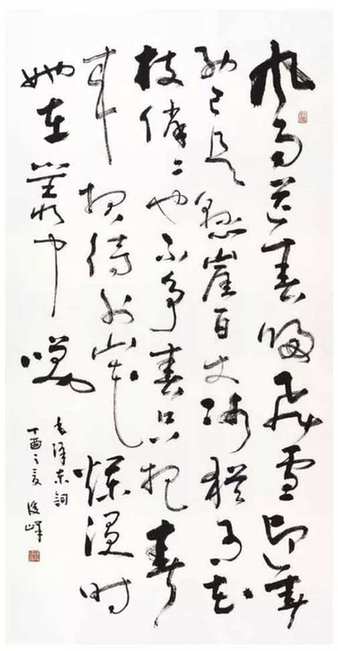 风雨送春归飞雪迎春
到已是悬崖百丈冰犹有花
枝俏〻也不争春只把春
来报待到山花烂漫时
她在丛中笑
毛泽东词
丁酉之夏